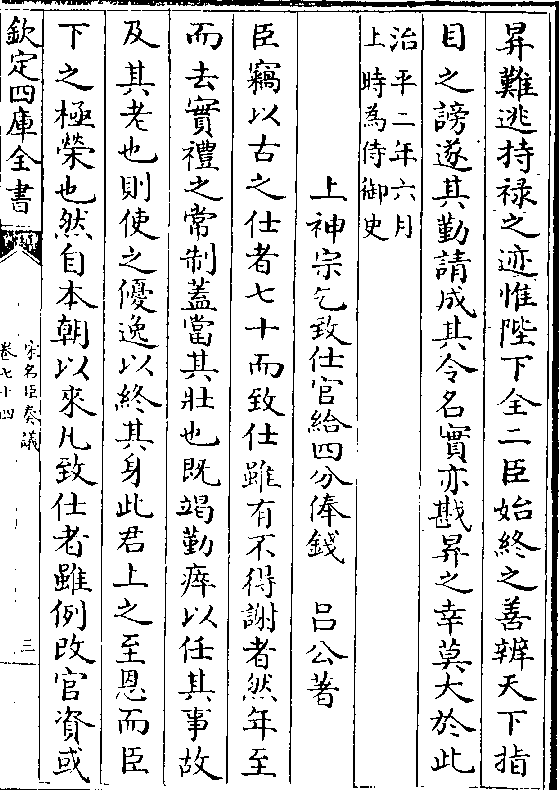 昇難逃持禄之迹惟陛下全二臣始終之善辨天下指
目之謗遂其勤請成其令名實亦戡昇之幸莫大於此
治平二年六月
上時為侍御史
上神宗乞致仕官給四分俸錢　呂公著
臣竊以古之仕者七十而致仕雖有不得謝者然年至
而去實禮之常制蓋當其壯也既竭勤瘁以任其事故
及其老也則使之優逸以終其身此君上之至恩而臣
下之極榮也然自本朝以來凡致仕者雖例改官資或
欽定四庫全書
宋名臣奏議
卷七十四
三